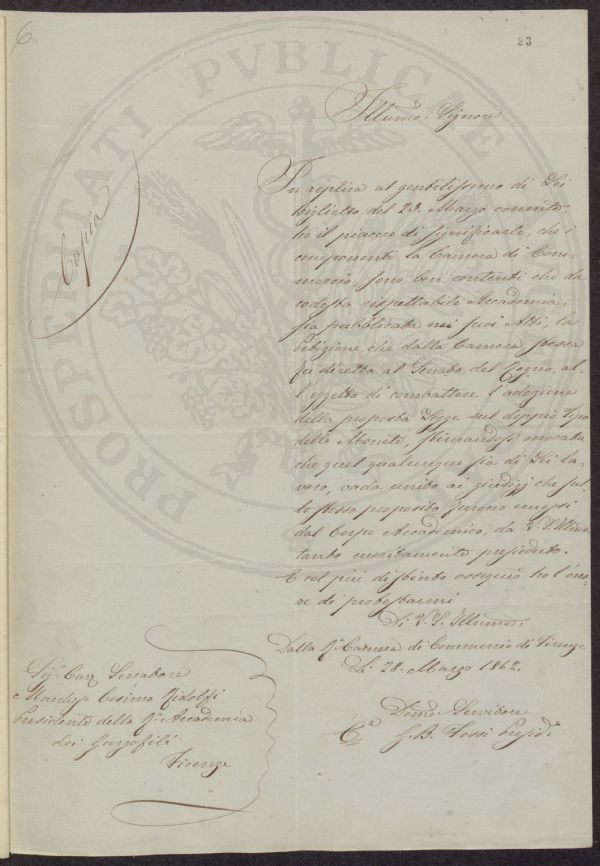 6.
23
PROSPERITATI PVBLICAE
Copia
Illmo. Signore
In replica al gentilissimo di Lei
biglietto del 23. Marzo corrente,
ho il piacere di significarle, che i
componenti la Camera di Com-
mercio sono ben contenti che da
codesta rispettabile Accademia,
sia pubblicata nei suoi Atti, la
Petizione che dalla Camera stessa
fu diretta al Senato del Regno, al-
l'oggetto di combattere l'adozione
della proposta Legge sul doppio Tipo
delle Monete, stimandosi onorata
che quel qualunque sia di Lei la-
voro, vada unito ai giudizj che sul-
lo stesso proposito furono emessi
dal Corpo Accademico, da V. S. Illma.
tanto meritamente presieduto.
E col più distinto ossequio ho l'ono-
re di protestarmi
Di V. S. Illma.
Dalla Ra. Camera di Commercio di Firenze
Li 28. Marzo 1862.
Sigr. Cav. Senatore
Marchese Cosimo Ridolfi
Presidente della Ra. Accademia
dei Georgofili
Firenze
Devmo. Servitore
G. B. Fossi Presid.